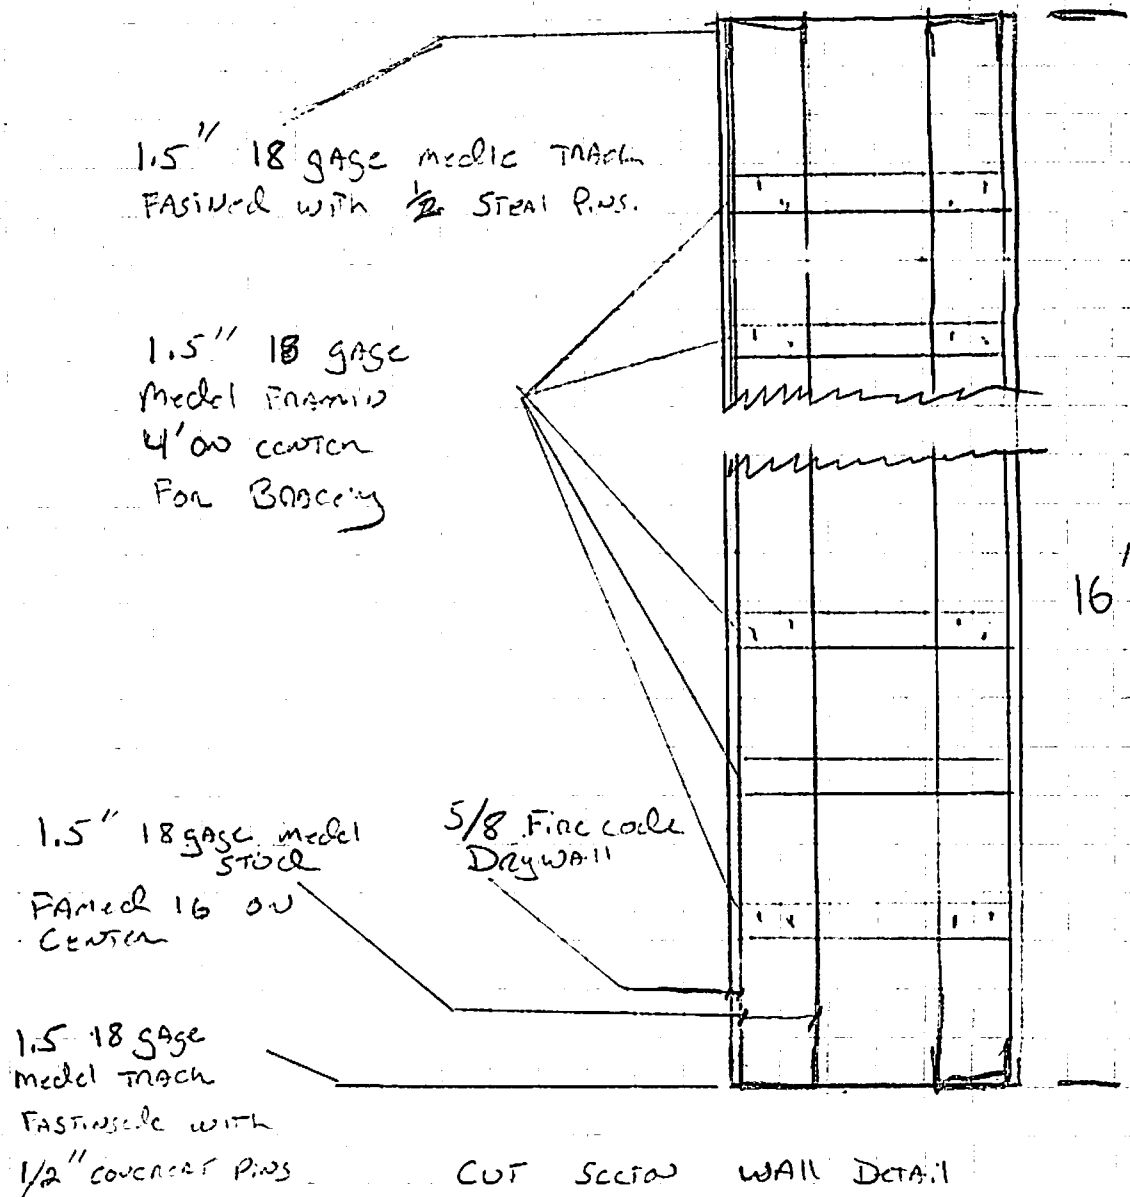 1.5" 18 gAge medle TRAck
FASiNed with 1/2 STEAl PiNS.
1.5" 18 gAge
Medel FRAMiN
4' oN ceNTeR
FoR BRACeiNg
16'
1.5" 18 gAge medel
STUd
FAMed 16 oN
CeNTeR
5/8 FiRe code
DRywAll
1.5 18 gAge
Medel TRACk
FASTiNSde wiTh
1/2" coNcReAT PiNS
CUT SecToN WAll DeTAil